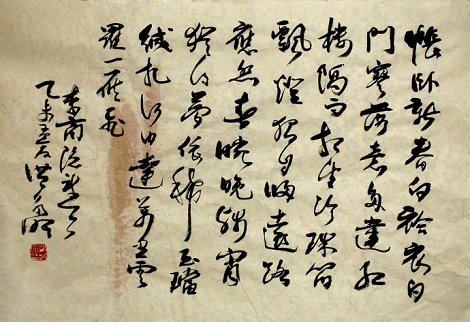 悵臥新春白袷衣白
門寥落意多違紅
樓隔雨相望冷珠箔
飄燈獨自歸遠路
應悲春晼晚殘宵
猶得夢依稀玉璫
緘札何由達萬里雲
羅一雁飛
李商隱
乙未